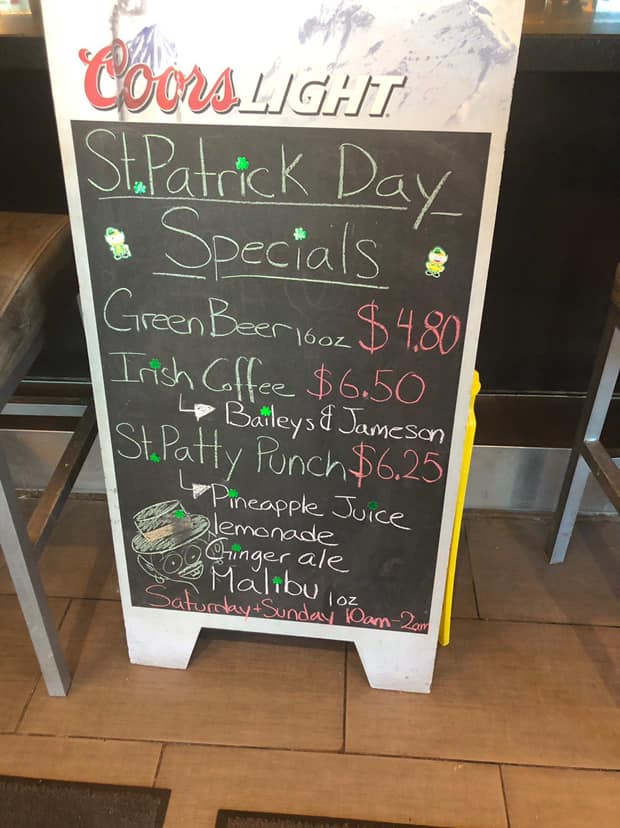 Coors LIGHT
St. Patrick Day
Specials
Green Beer 16oz $4.80
Irish Coffee $6.50
Baileys & Jameson
St. Patty Punch $6.25
Pineapple Juice
lemonade
Ginger ale
Malibu 1oz
Saturday + Sunday 10am-2am